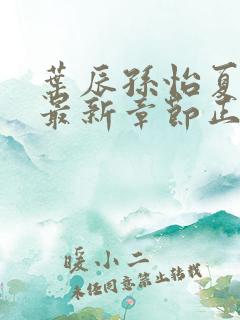 叶辰孙怡夏
最新章节正
暖小二
未经同意禁止转载